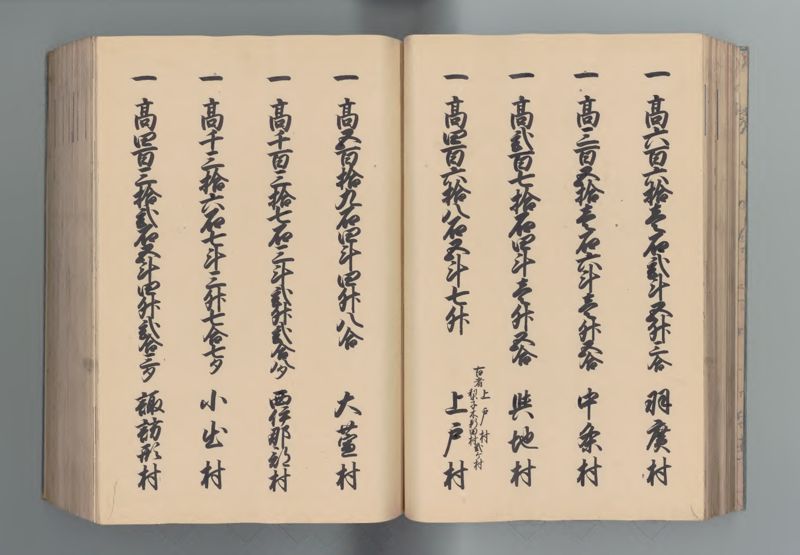 一 高六百六拾壱石弐斗五升三合 羽廣村
一 高三百五拾壱石六斗壱升五合 中条村
一 高弐百七拾石四斗壱升五合 与地村
一 高四百六拾八石五斗七升 上戸村
古者上戸村
梨子木新田村弐ヶ村
一 高五百拾九石四斗四升八合 大萱村
一 高千百三拾七石三斗弐升弐合 西伊那部村
一 高千三拾六石七斗三升七合七夕 小出村
一 高四百三拾弐石五斗四升弐合三夕 諏訪形村